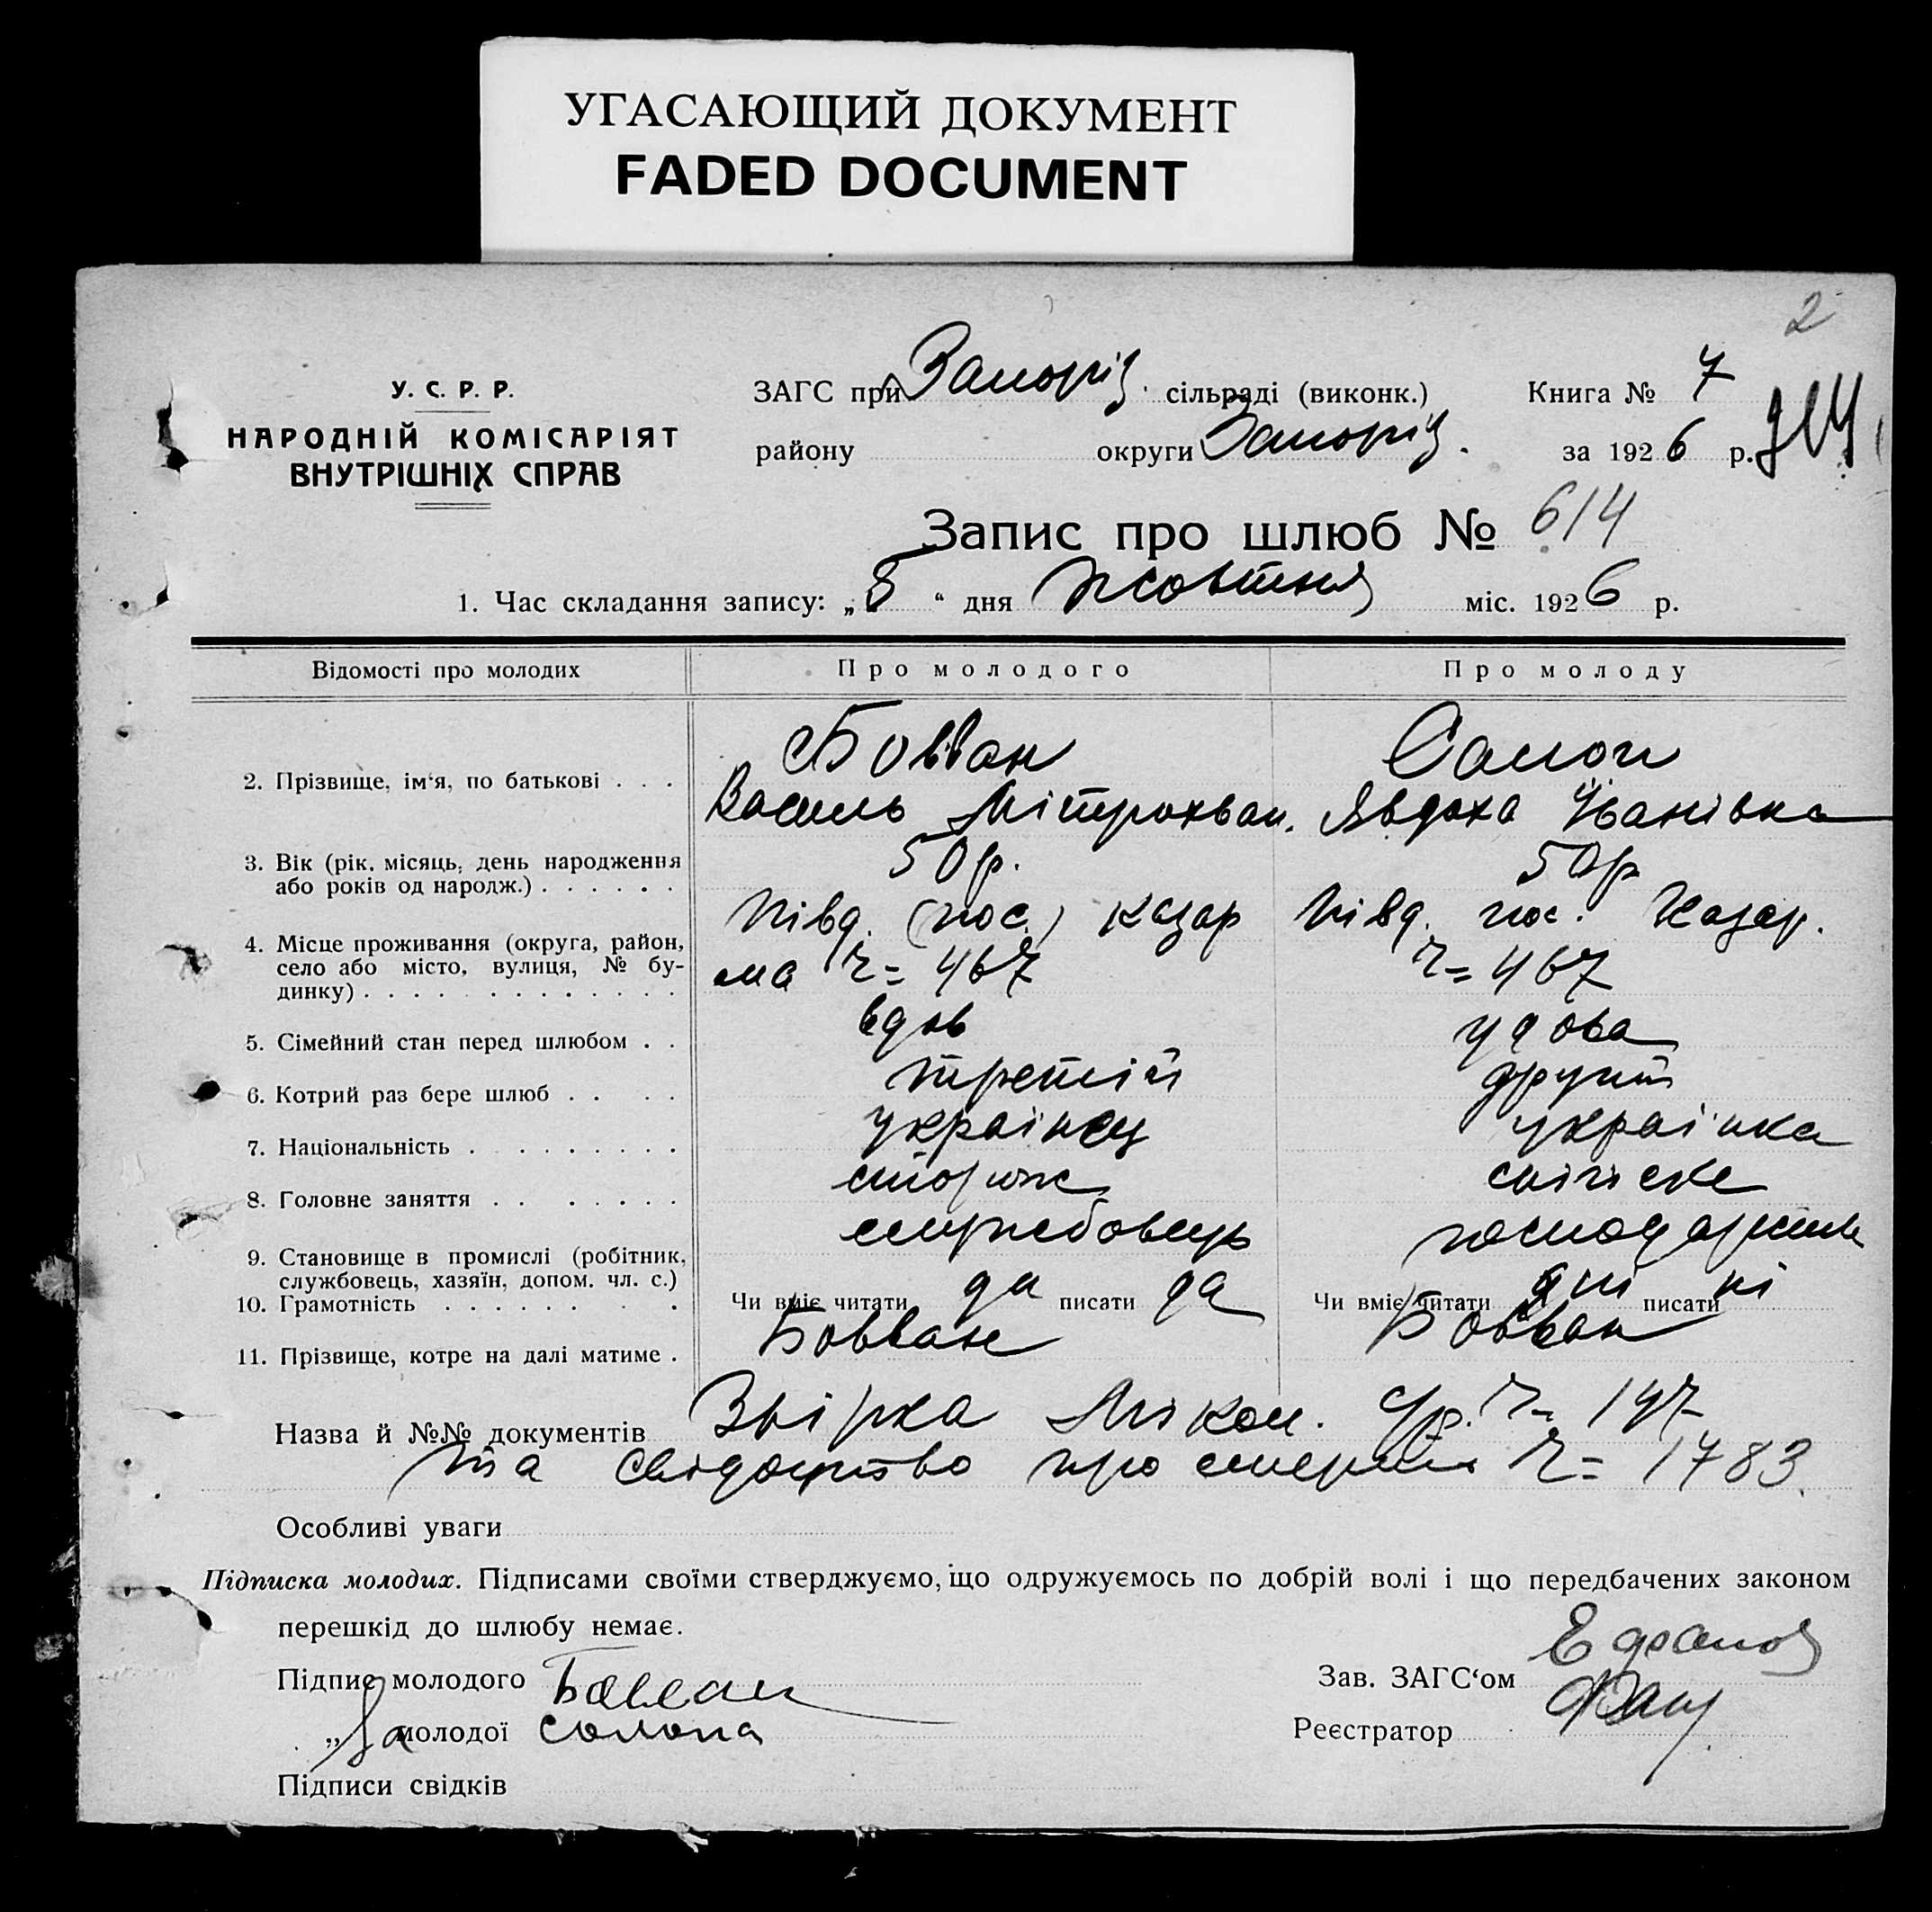 УГАСАЮЩИЙ ДОКУМЕНТ
FADED DOCUMENT
2
У. С. Р. Р.
НАРОДНІЙ КОМІСАРІЯТ
ВНУТРІШНІХ СПРАВ
ЗАГС при Запоріз. сільраді (виконк.) Книга № 7
району округи Запоріз. за 1926 р.
Запис про шлюб № 614
1. Час складання запису: „5“ дня Жовтня міс. 1926 р.
Відомості про молодих Про молодого Про молоду
2. Прізвище, ім‘я, по батькові . . . Бовван
Василь Мітрохван. Явдоха Іванівна
3. Вік (рік, місяць, день народження або років од народж.) . . . . . . 50 р. 50 р
4. Місце проживання (округа, район, село або місто, вулиця, № будинку) . . . . . . . . . . . . . Півд. (пос.) Казар Півд. пос. Казар.
ма № 467 № 467
5. Сімейний стан перед шлюбом . . вдов удова
6. Котрий раз бере шлюб . . . . третій другий
7. Національність . . . . . . . . . українец українка
8. Головне заняття . . . . . . . сторож сільське
9. Становище в промислі (робітник, службовець, хазяїн, допом. чл. с.) службовець
10. Грамотність . . . . . . . . Чи вміє читати да писати да Чи вміє читати ні писати ні
11. Прізвище, котре на далі матиме . Бовван Бовван
Назва й №№ документів Звірка Мікол. № 147
та свідоцтво про смерть № 1783.
Особливі уваги
Підписка молодих. Підписами своїми стверджуємо, що одружуємось по добрій волі і що передбачених законом
перешкід до шлюбу немає.
Підпис молодого Бовван Зав. ЗАГС‘ом
„ За молодої Солопа Реєстратор
Підписи свідків